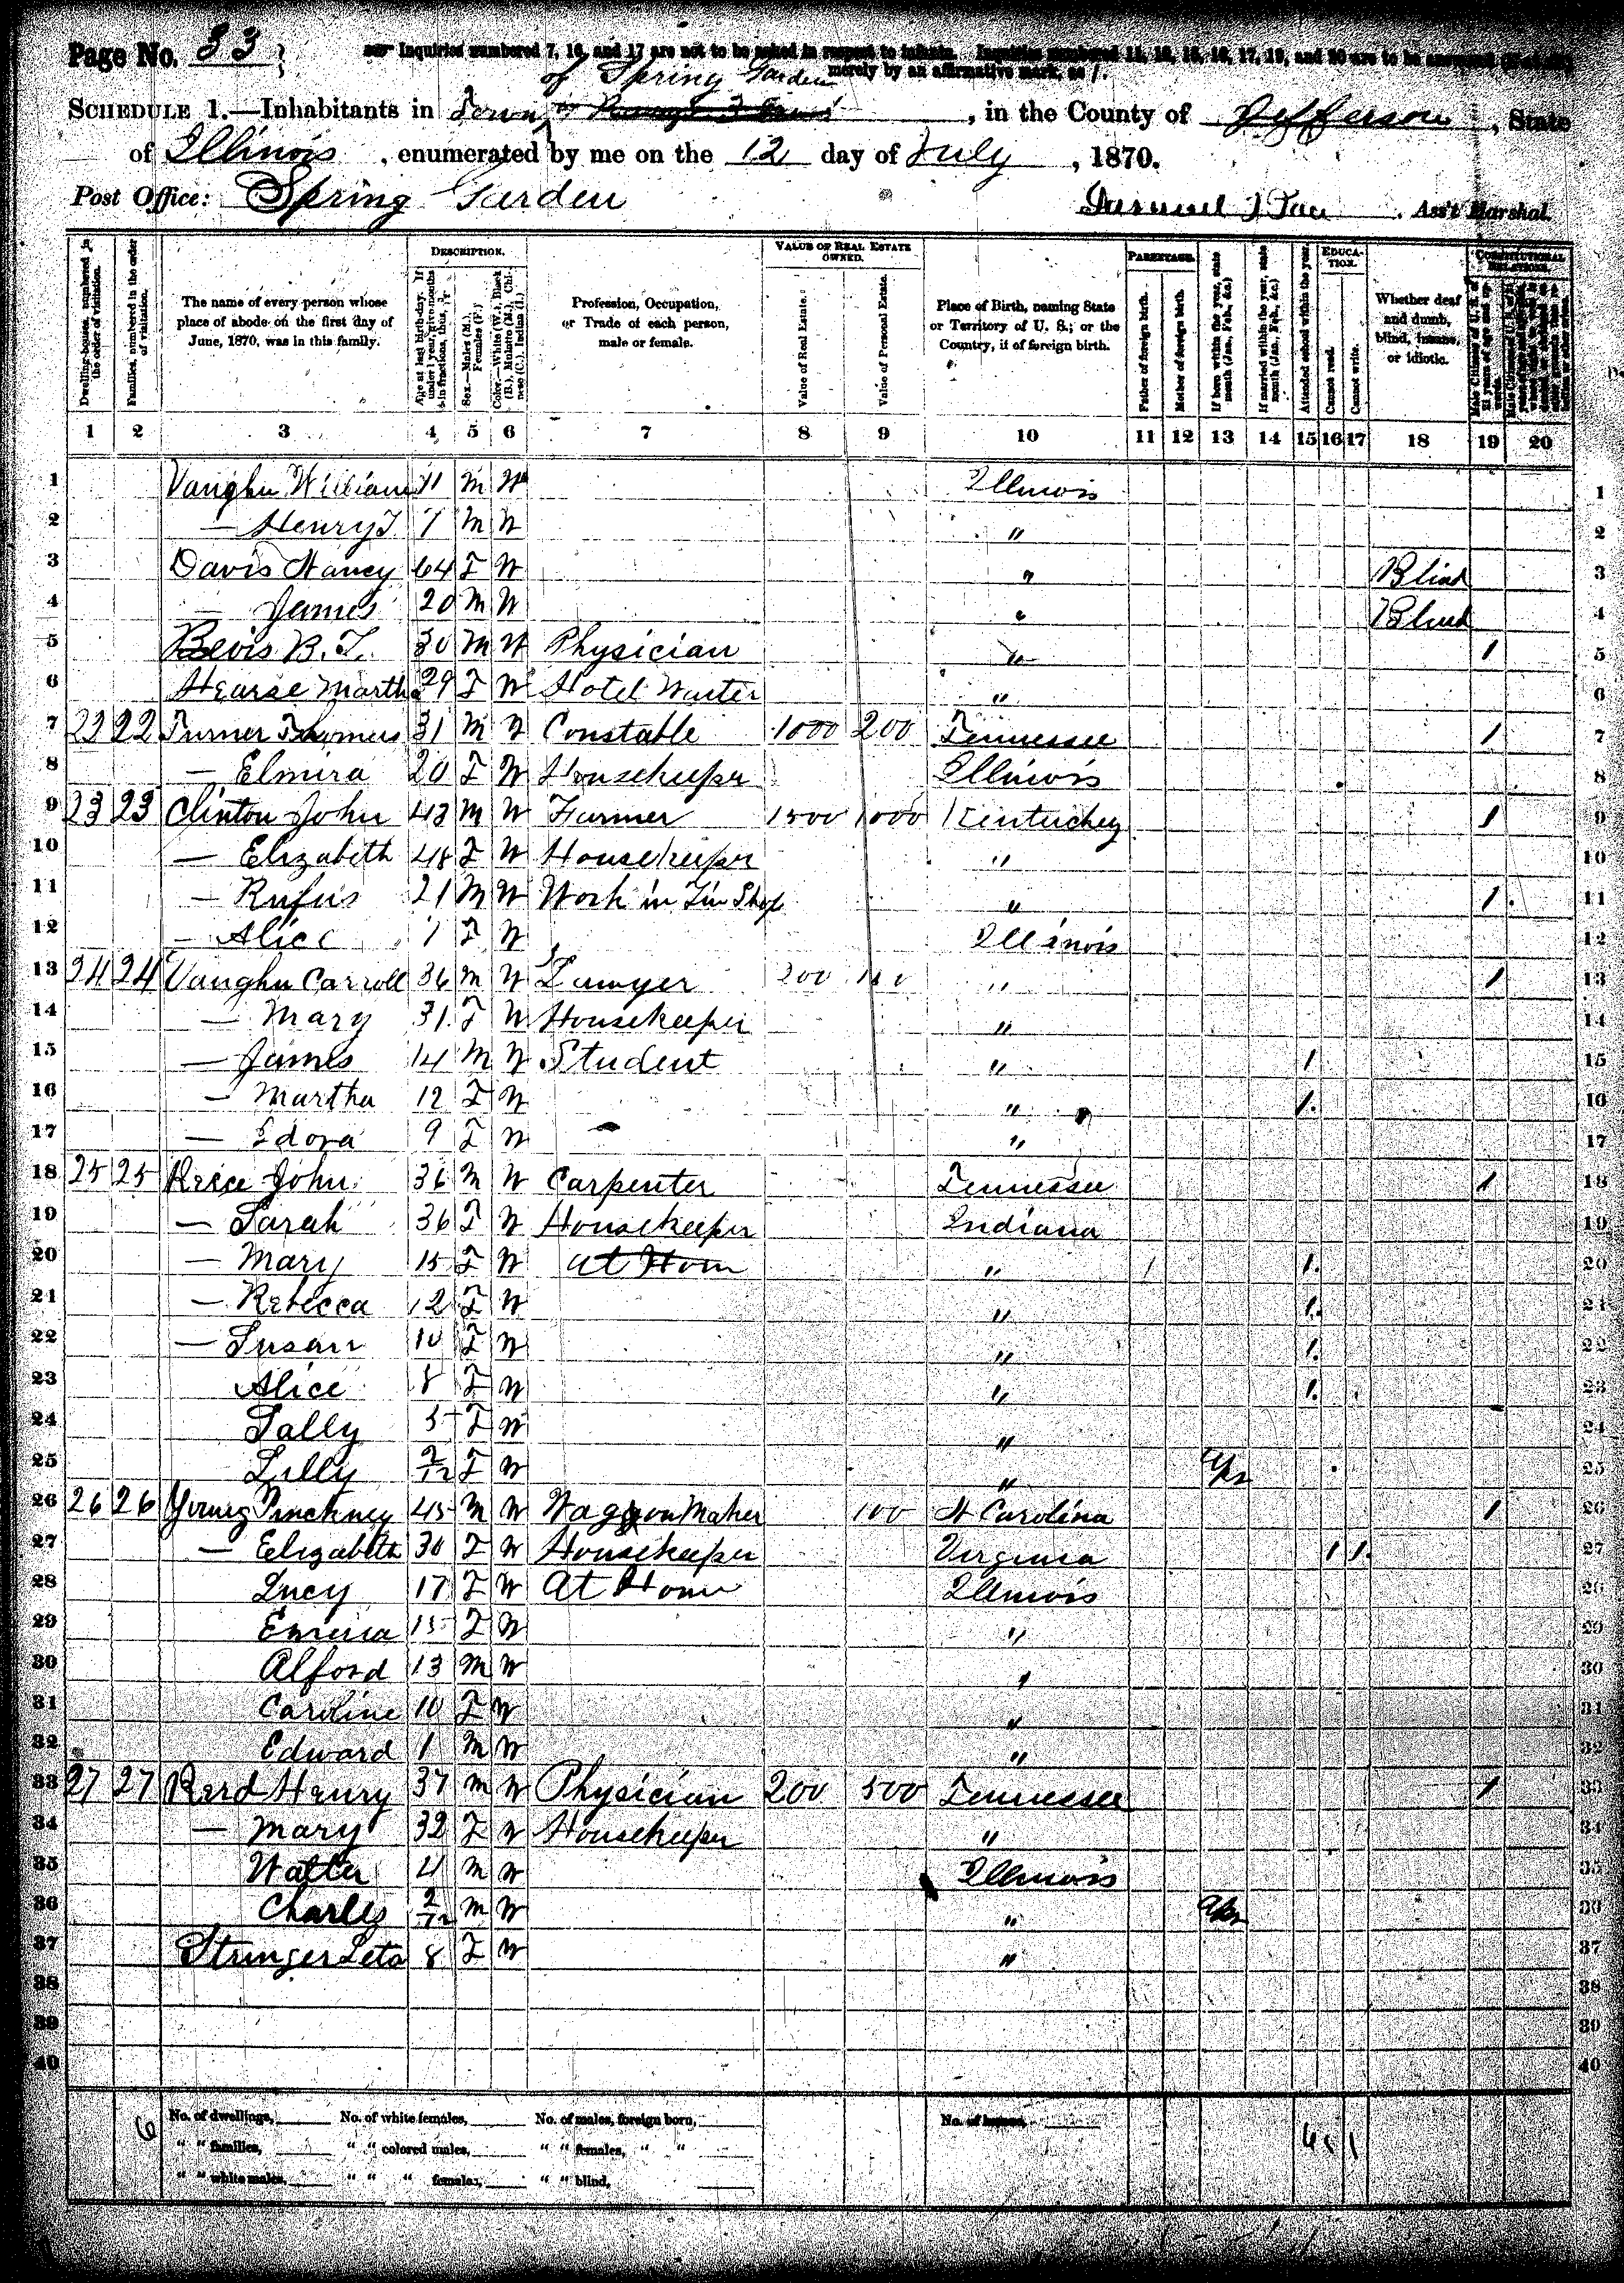 Page No. 33
Inquiries numbered 7, 16, and 17 are not to be asked in respect to infants. Inquiries numbered 11, 12, 15, 16, 17, 19, and 20 are to be answered
merely by an affirmative mark, as /.
of Spring Garden
SCHEDULE 1.—Inhabitants in Town, in the County of Jefferson, State
of Illinois, enumerated by me on the 12 day of July, 1870.
Post Office: Spring Garden Ass't Marshal.
Dwelling-houses, numbered in the order of visitation.
Families, numbered in the order of visitation.
The name of every person whose place of abode on the first day of June, 1870, was in this family.
DESCRIPTION.
Age at last birth-day. If under 1 year, give months in fractions, thus,
Sex.—Males (M.), Females (F.)
Color.—White (W.), Black (B.), Mulatto (M.), Chinese (C.), Indian (I.)
Profession, Occupation, or Trade of each person, male or female.
VALUE OF REAL ESTATE OWNED.
Value of Real Estate.
Value of Personal Estate.
Place of Birth, naming State or Territory of U. S.; or the Country, if of foreign birth.
PARENTAGE.
Father of foreign birth.
Mother of foreign birth.
If born within the year, state month (Jan., Feb., &c.)
If married within the year, state month (Jan., Feb., &c.)
EDUCATION.
Attended school within the year.
Cannot read.
Cannot write.
Whether deaf and dumb, blind, insane, or idiotic.
CONSTITUTIONAL RELATIONS.
Male Citizens of U. S. of 21 years of age and upwards.
1 2 3 4 5 6 7 8 9 10 11 12 13 14 15 16 17 18 19 20
1 Vaughn William 11 M W Illinois 1
2 — Henry T 7 M W " 2
3 Davis Nancy 64 F W " Blind 3
4 — James 20 M W " Blind 4
5 Bevis B. T. 30 M W Physician " 1 5
6 Hearse Martha 29 F W Hotel Waiter " 6
7 22 22 Turner Thomas 31 M W Constable 1000 200 Tennessee 1 7
8 — Elmira 20 F W Housekeeper Illinois 8
9 23 23 Clinton John 43 M W Farmer 1500 1000 Kentuckey 1 9
10 — Elizabeth 48 F W Housekeeper " 10
11 — Rufus 21 M W Work in Tin Shop " 1 11
12 — Alice 7 F W Illinois 12
13 24 24 Vaughn Carroll 36 M W Lawyer 200 100 " 1 13
14 — Mary 31 F W Housekeeper " 14
15 — James 14 M W Student " 1 15
16 — Martha 12 F W " 1 16
17 — Idora 9 F W " 17
18 25 25 Reice John 36 M W Carpenter Tennessee 1 18
19 — Sarah 36 F W Housekeeper Indiana 19
20 — Mary 15 F W at Hom " 1 1 20
21 — Rebecca 12 F W " 1 21
22 — Susan 10 F W " 1 22
23 Alice 8 F W " 1 23
24 Sally 5 F W " 24
25 Lilly 2/12 F W " 25
26 26 26 Young Pinckney 45 M W Waggon Maker 100 N Carolina 1 26
27 — Elizabeth 30 F W Housekeeper Virginia 1 1 27
28 Lucy 17 F W At Home Illinois 28
29 Emma 15 F W " 29
30 Alford 13 M W " 30
31 Caroline 10 F W " 31
32 Edward 1 M W " 32
33 27 27 Reed Henry 37 M W Physician 200 500 Tennessee 1 33
34 — Mary 32 F W Housekeeper " 34
35 Walter 4 M W Illinois 35
36 Charles 2/12 M W " 36
37 Stringer Leta 8 F W " 37
38 38
39 39
40 40
6 No. of dwellings, No. of white females, No. of males, foreign born, No. of
" " families, " " colored males, " " females, " "
" " white males, " " " females, " " blind,